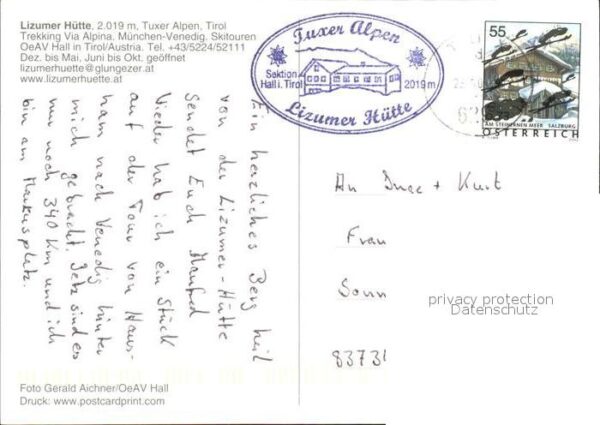 Lizumer Hütte, 2.019 m, Tuxer Alpen, Tirol
Trekking Via Alpina. München-Venedig. Skitouren
OeAV Hall in Tirol/Austria. Tel. +43/5224/52111
Dez. bis Mai, Juni bis Okt. geöffnet
lizumerhuette@glungezer.at
www.lizumerhuette.at
Tuxer Alpen
Sektion
Hall i. Tirol
2019 m
Lizumer Hütte
55
AM STEINERNEN MEER SALZBURG
ÖSTERREICH
Ein herzliches Berg heil
von der Lizumer-Hütte
Sendet Euch Manfred
Wieder hab ich ein Stück
auf der Tour von Haus-
ham nach Venedig hinter
mich gebracht. Jetz sind es
nur noch 340 Km und ich
bin am Markusplatz.
An Inge + Kurt
Frau
Sonn
83731
privacy protection
Datenschutz
Foto Gerald Aichner/OeAV Hall
Druck: www.postcardprint.com